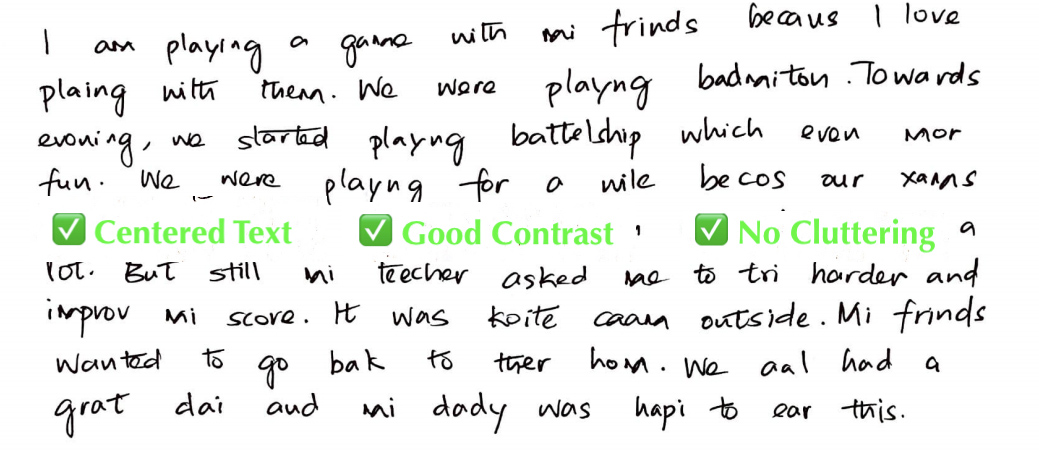 I am playing a game with mi frinds becaus I love
plaing with them. We were playng badmiton. Towards
evening, we started playng battelship which even mor
fun. We were playng for a wile becos our xams
✅ Centered Text ✅ Good Contrast ✅ No Cluttering a
lot. But still mi teecher asked me to tri harder and
improv mi score. It was koite caam outside. Mi frinds
wanted to go bak to ther hom. We aal had a
grat dai and mi dady was hapi to ear this.